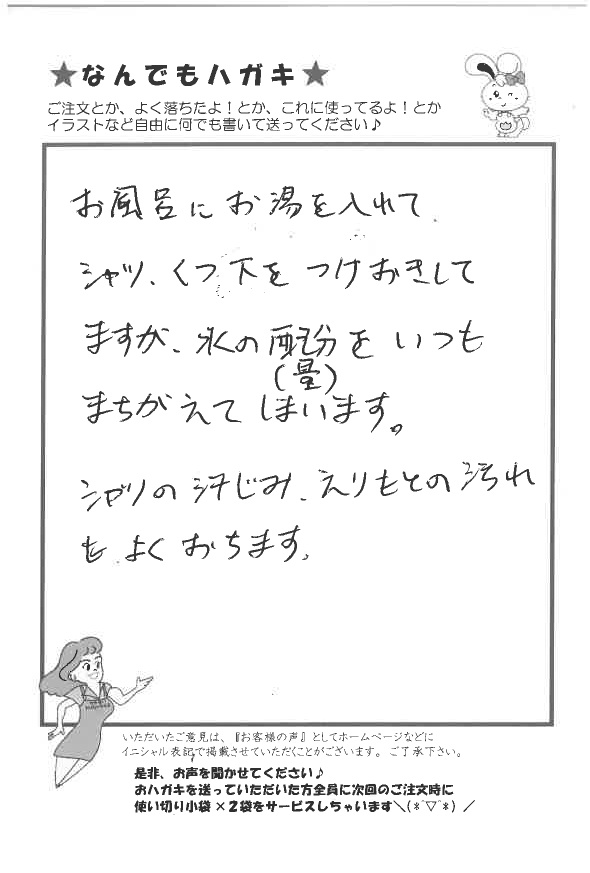 ★なんでもハガキ★
ご注文とか、よく落ちたよ！とか、これに使ってるよ！とか
イラストなど自由に何でも書いて送ってください♪
お風呂にお湯を入れて
シャツ、くつ下を つけおきして
ますが、水の配分を いつも
(量)
まちがえて しまいます。
シャツの汗じみ、えりもとの汚れ
も よく おちます。
いただいたご意見は、『お客様の声』としてホームページなどに
イニシャル表記で掲載させていただくことがございます。ご了承下さい。
是非、お声を聞かせてください♪
おハガキを送っていただいた方全員に次回のご注文時に
使い切り小袋×2袋をサービスしちゃいます＼(*´▽`*)／